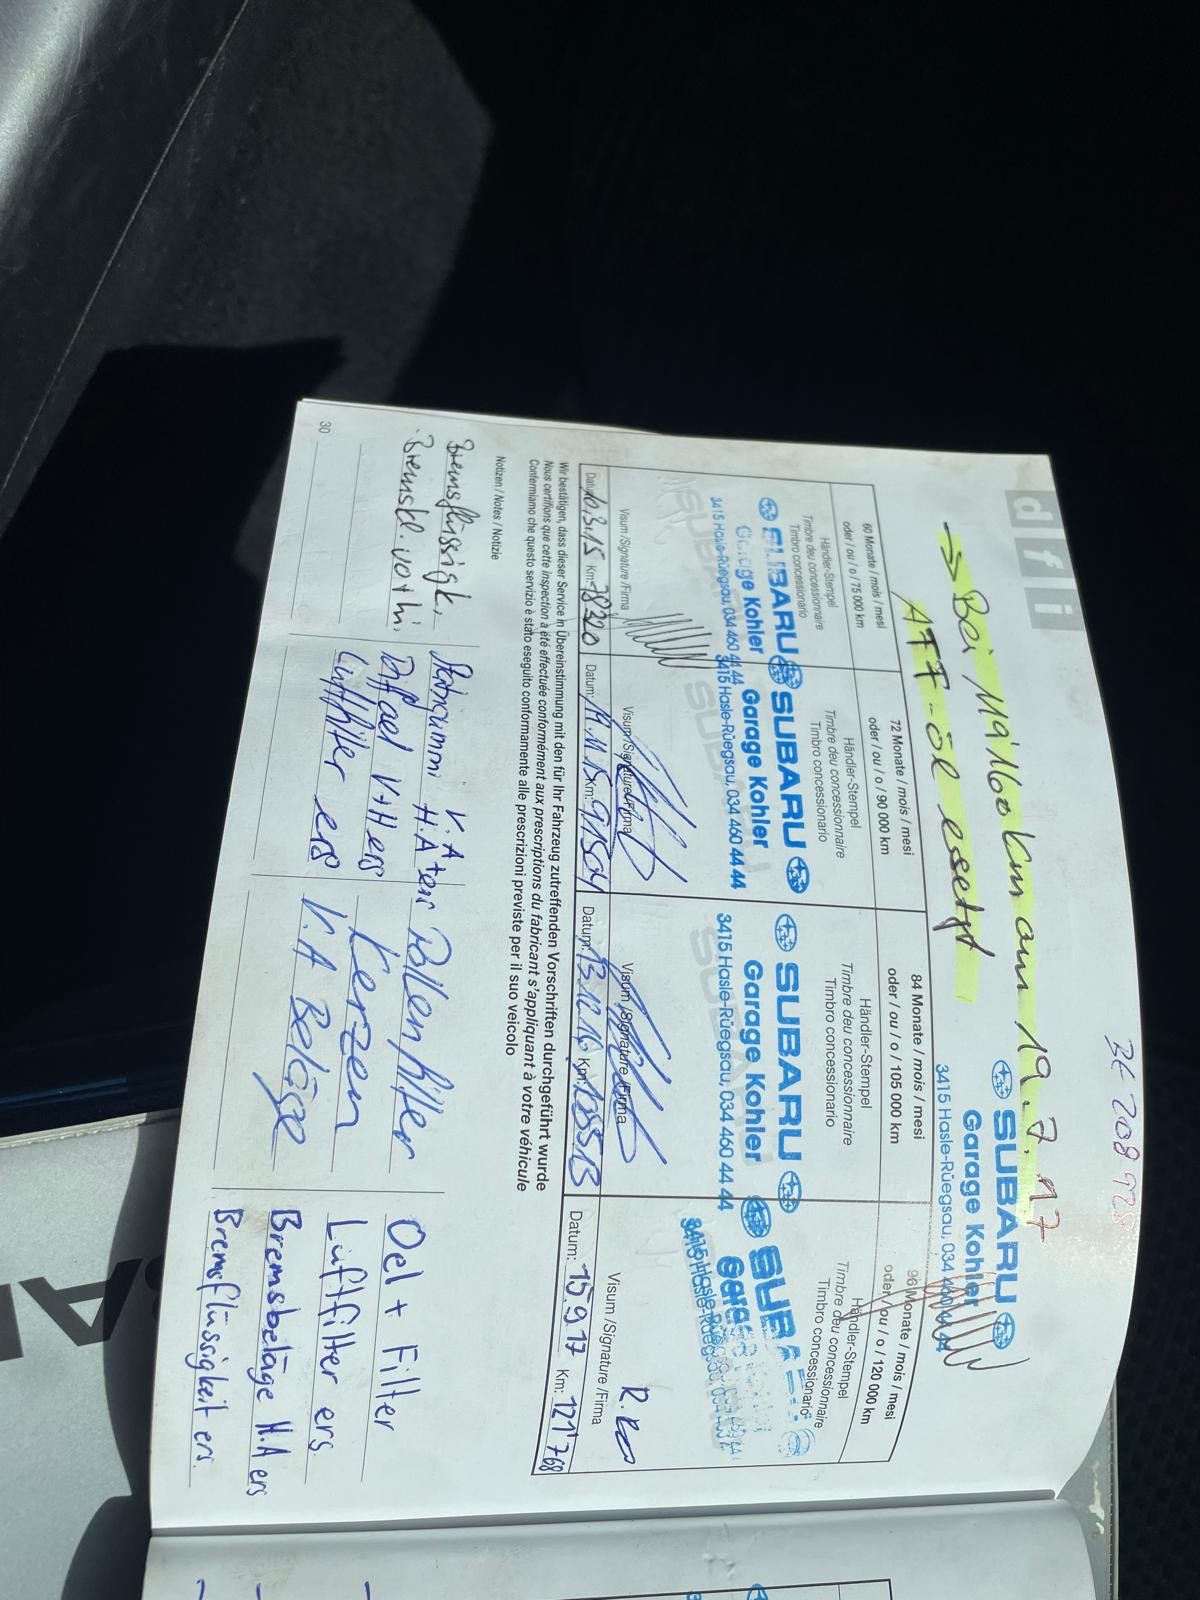 BE 208 928
→ Bei 119'160 km am 19.7.17
ATF-öl ersetzt
SUBARU
Garage Kohler
3415 Hasle-Rüegsau, 034 460 44 44
60 Monate / mois / mesi
oder / ou / o / 75 000 km
Händler-Stempel
Timbre deu concessionnaire
Timbro concessionario
SUBARU
Garage Kohler
3415 Hasle-Rüegsau, 034 460 44 44
Visum /Signature /Firma
Km: 78320
72 Monate / mois / mesi
oder / ou / o / 90 000 km
Händler-Stempel
Timbre deu concessionnaire
Timbro concessionario
SUBARU
Garage Kohler
3415 Hasle-Rüegsau, 034 460 44 44
Visum /Signature /Firma
Datum: 11.11.15 Km: 91504
84 Monate / mois / mesi
oder / ou / o / 105 000 km
Händler-Stempel
Timbre deu concessionnaire
Timbro concessionario
SUBARU
Garage Kohler
3415 Hasle-Rüegsau, 034 460 44 44
Visum /Signature /Firma
Datum: 13.12.16 Km:
96 Monate / mois / mesi
oder / ou / o / 120 000 km
Händler-Stempel
Timbre deu concessionnaire
Timbro concessionario
SUBARU
Garage
3415 Hasle-Rüegsau, 034 460 44 44
Visum /Signature /Firma
Datum: 15.9.17 Km: 121'768
Wir bestätigen, dass dieser Service in Übereinstimmung mit den für Ihr Fahrzeug zutreffenden Vorschriften durchgeführt wurde
Nous certifions que cette inspection a été effectuée conformément aux prescriptions du fabricant s'appliquant à votre véhicule
Confermiamo che questo servizio è stato eseguito conformamente alle prescrizioni previste per il suo veicolo
Notizen / Notes / Notizie
Bremsflüssigk.
Bremsbel. vo + hi.
Stabigummi V.A + H.A ers
Diff oel V+H ers
Luftfilter ers
Pollenfilter
Kerzen
V.A Beläge
Oel + Filter
Luftfilter ers.
Bremsbeläge H.A ers
Bremsflüssigkeit ers.
30